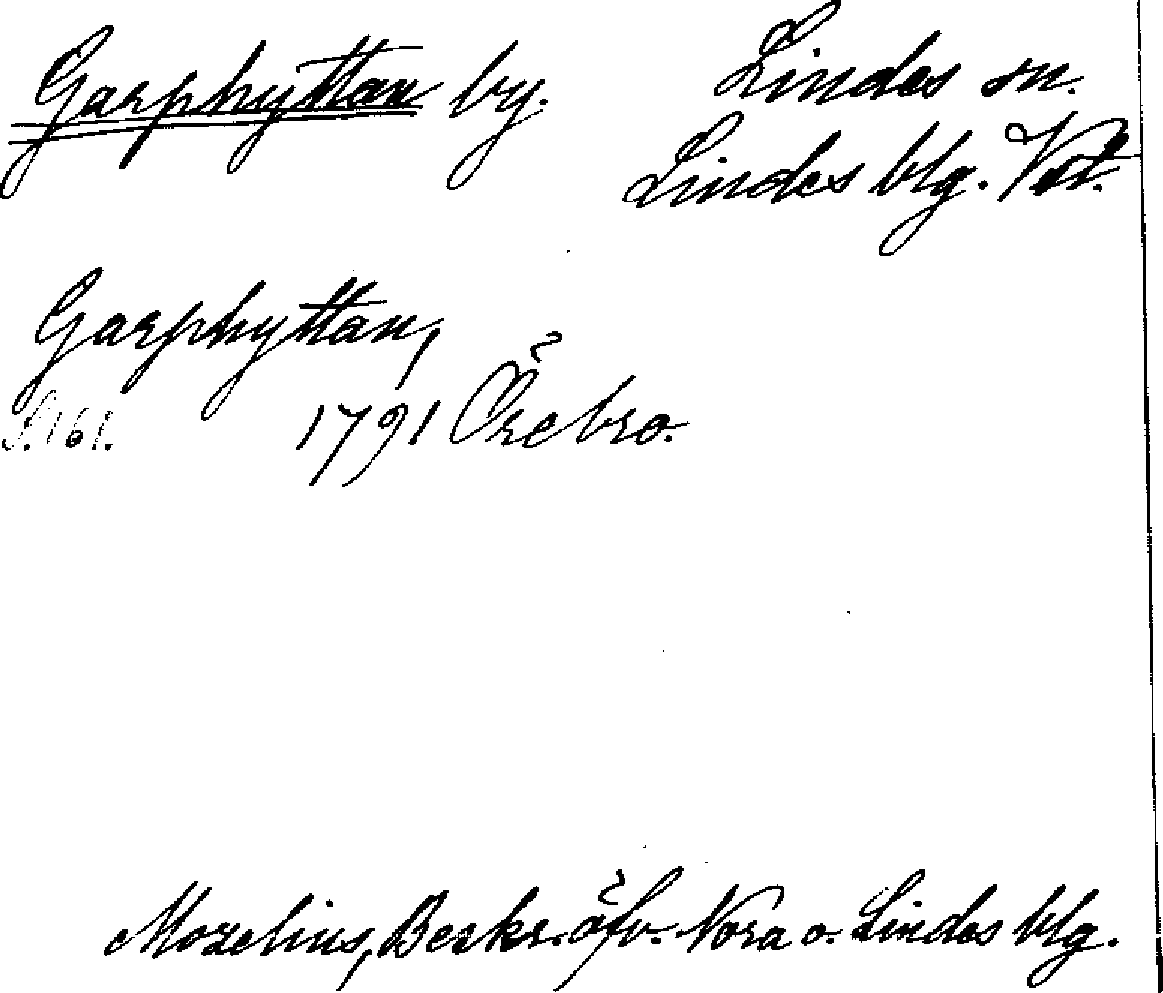 Garphyttan by. Lindes sn.
Lindes blg. Vstm.
Garphyttan,
S. 161. 1791 Örebro.
Mozelius, Beskr. öfv. Nora o. Lindes blg.